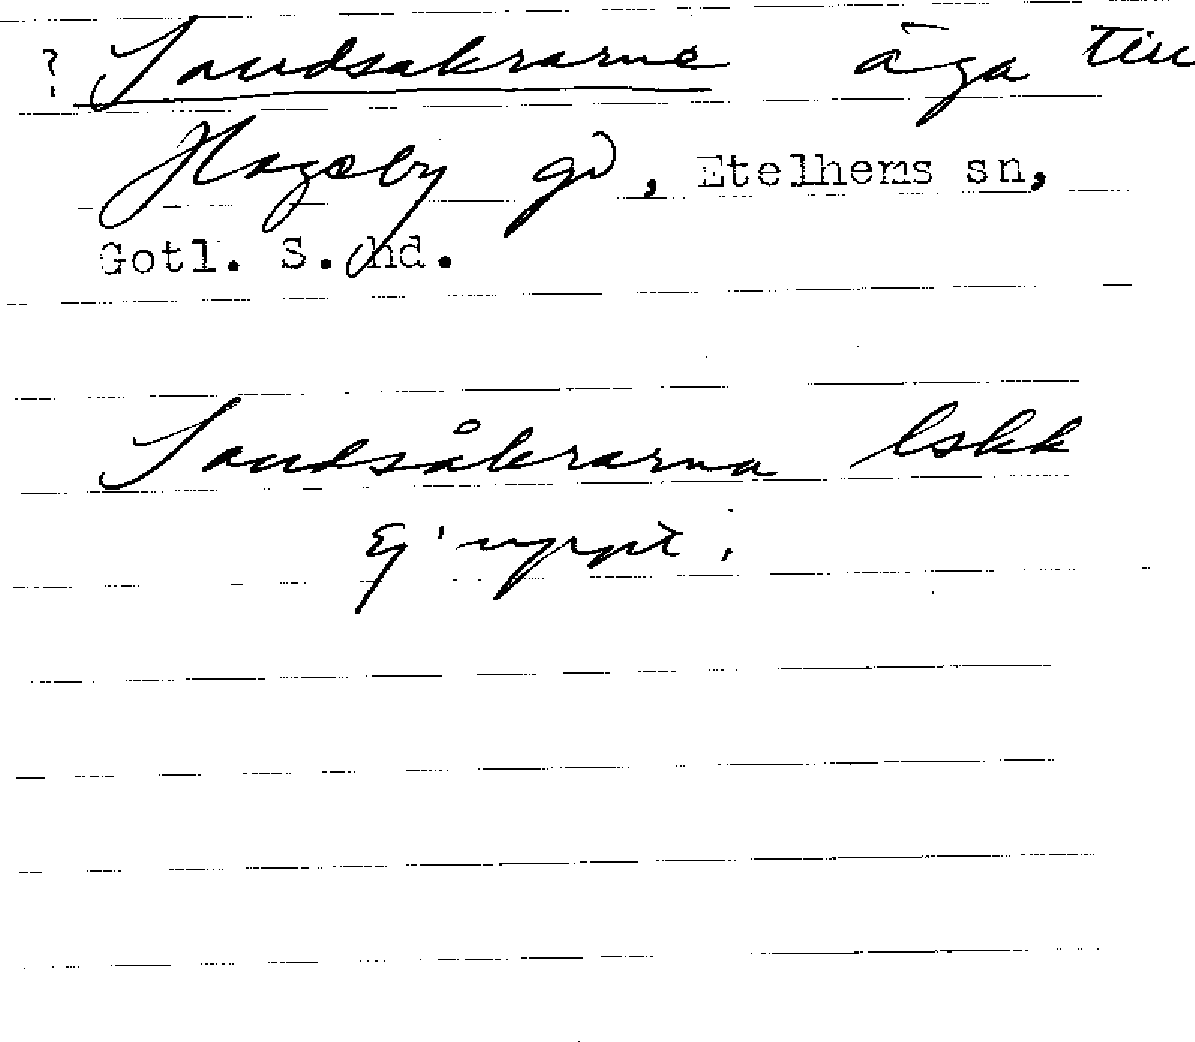 ? Sandsakrarne äga till
Hageby gd, Etelhems sn,
Gotl. S. hd.
Sandsåkrarna lskk
Ej uppt.